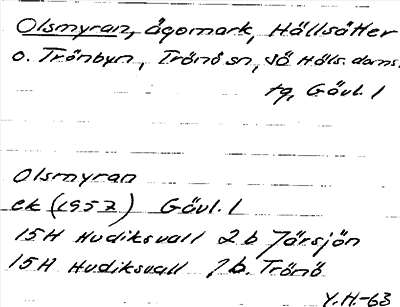 Olsmyran, ägomark, Hällsätter
o. Trönbyn, Trönö sn, sö. Häls. doms.
tg, Gävl. l
Olsmyran
ek (1957) Gävl. l
15H Hudiksvall 2b Järsjön
15H Hudiksvall 1b. Trönö
Y.H.-63